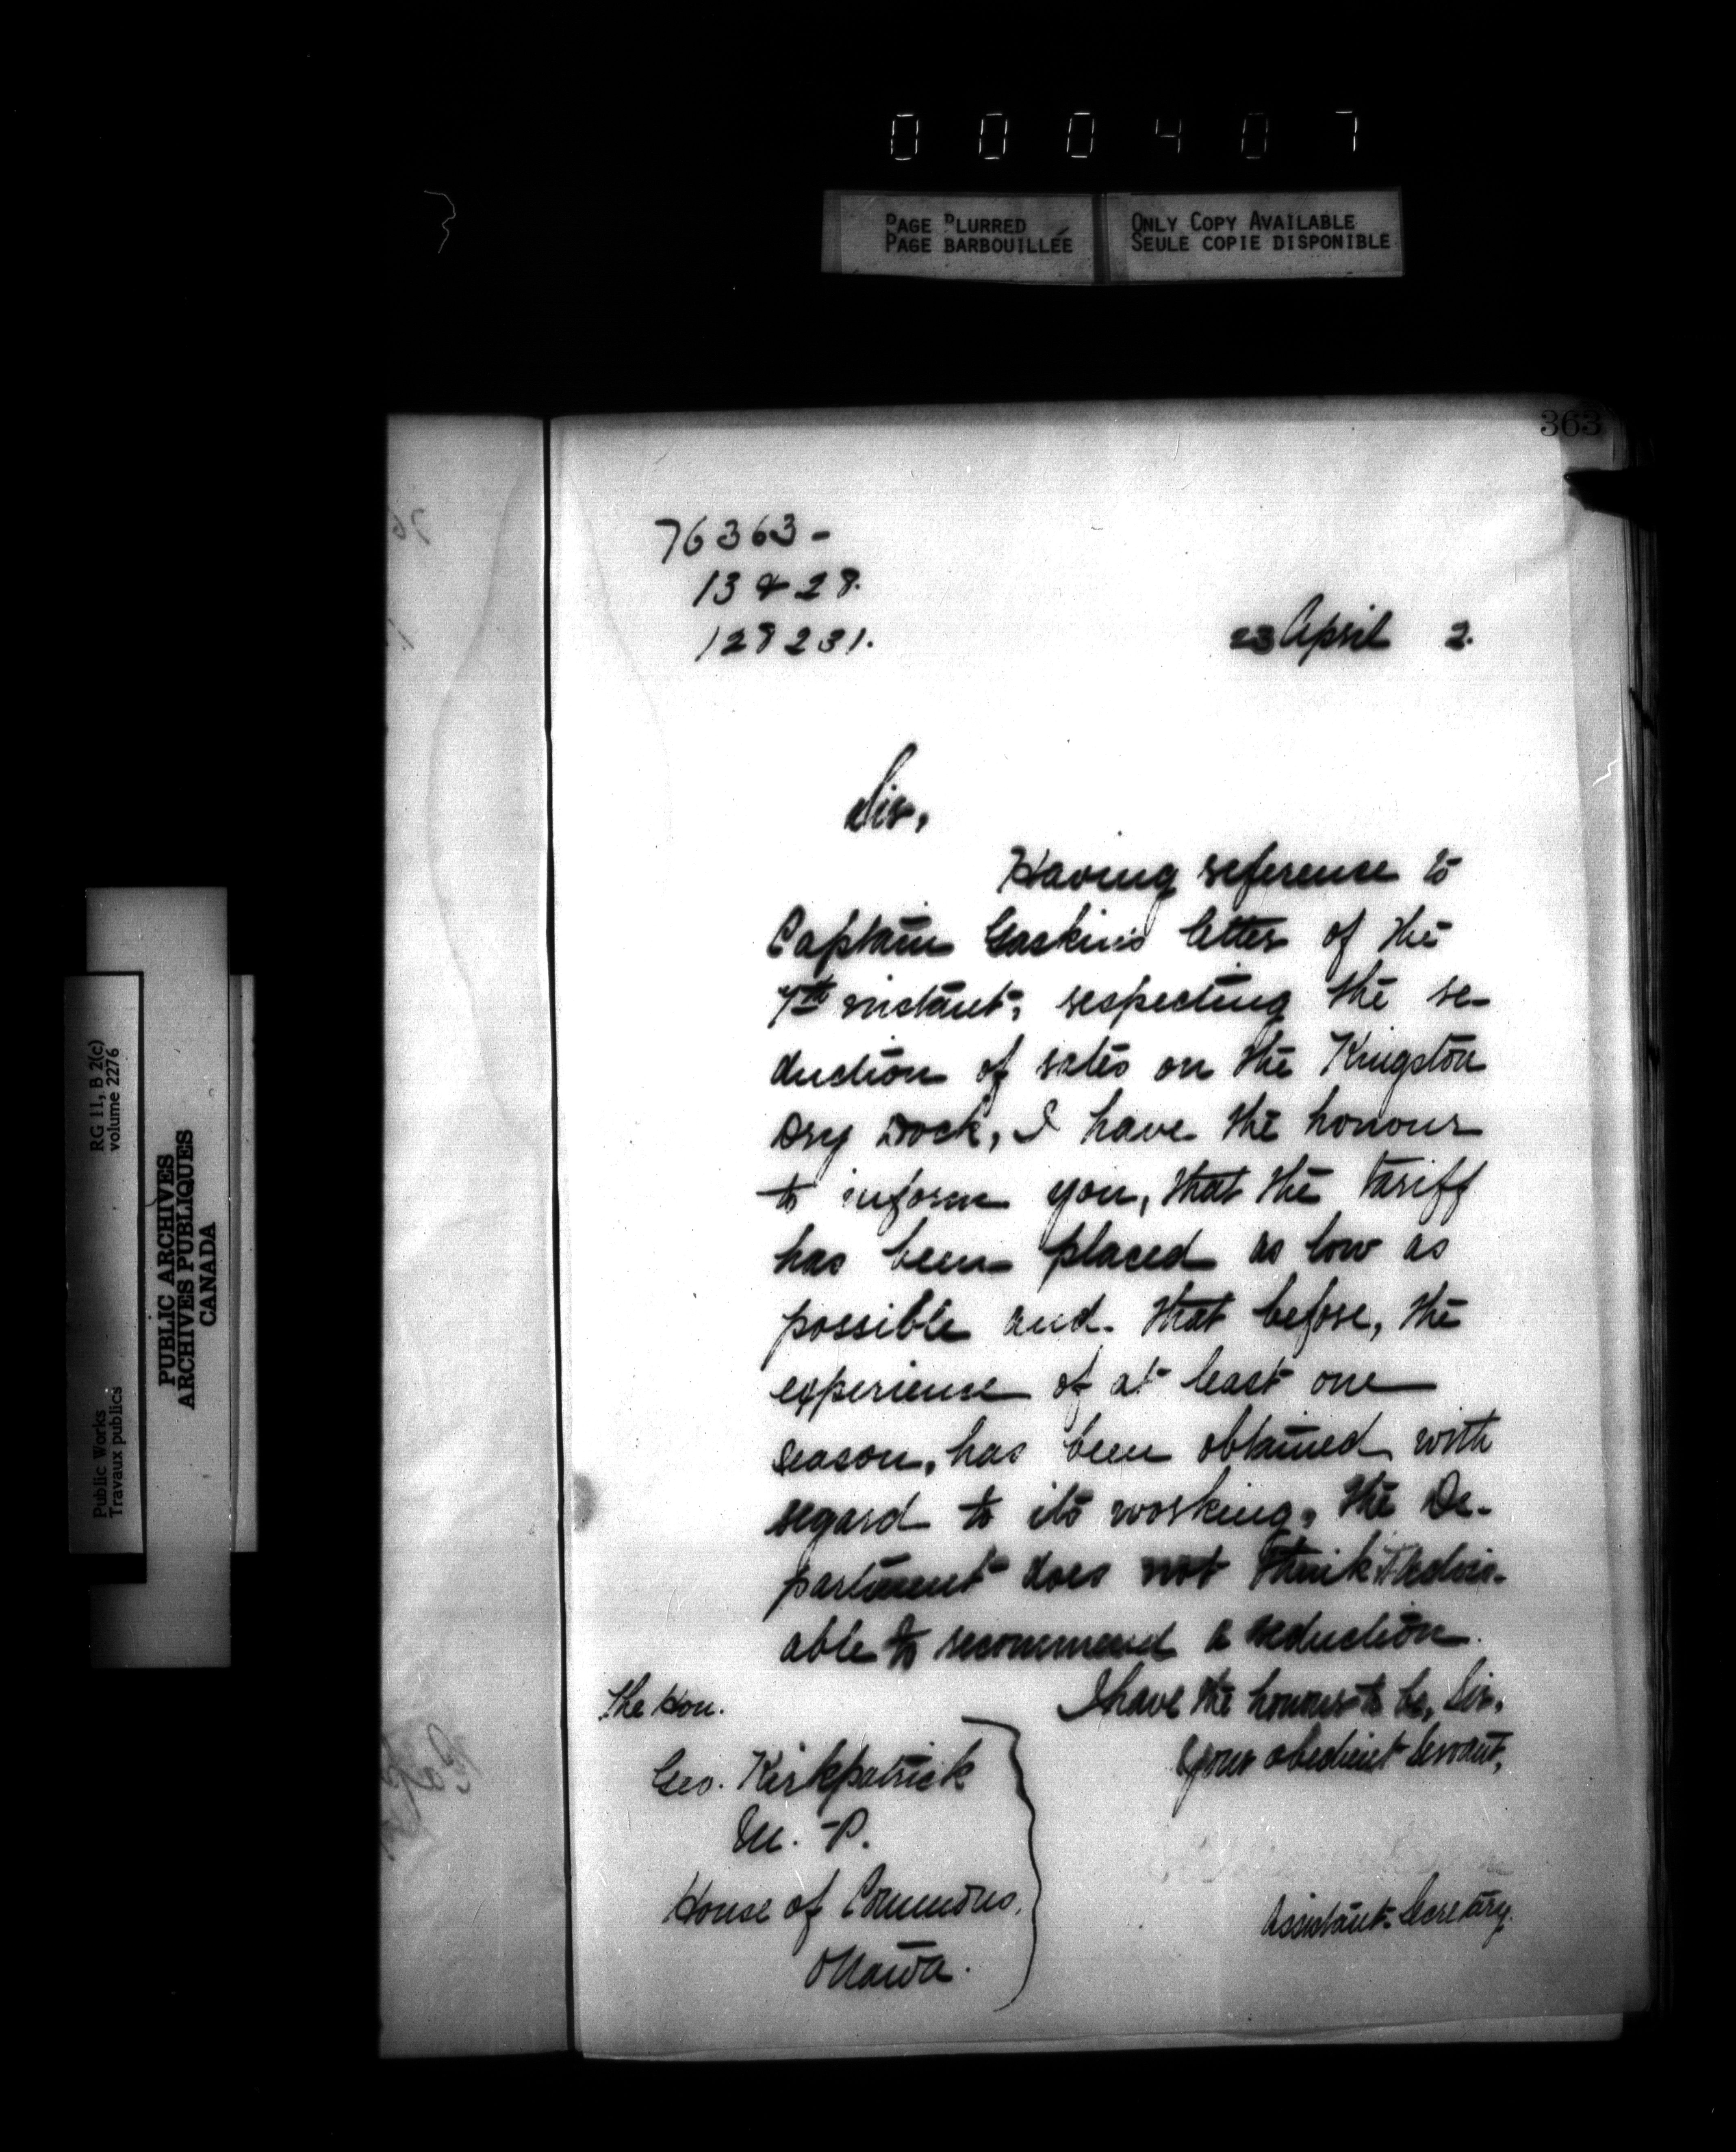 000407
PAGE BLURRED
PAGE BARBOUILLÉE
ONLY COPY AVAILABLE
SEULE COPIE DISPONIBLE
363
76363-
13 & 28.
128231.
23 April 2.
Sir,
Having reference to
Captain Gaskin's letter of the
7th instant, respecting the re-
duction of rates on the Kingston
Dry Dock, I have the honour
to inform you, that the tariff
has been placed as low as
possible and that before, the
experience of at least one
season, has been obtained with
regard to its working, the De-
partment does not think it advis-
able to recommend a reduction.
I have the honour to be, Sir,
Your obedient Servant,
Assistant Secretary.
The Hon.
Geo. Kirkpatrick
M. P.
House of Commons,
Ottawa.
RG 11, B 2(c)
volume 2276
PUBLIC ARCHIVES
ARCHIVES PUBLIQUES
CANADA
Public Works
Travaux publics